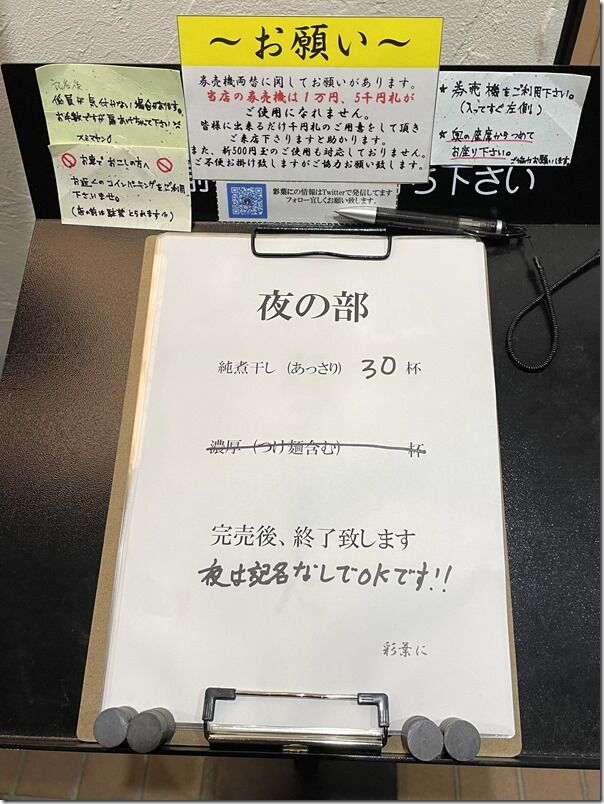 ～お願い～
券売機両替に関してお願いがあります。
当店の券売機は1万円、5千円札が
ご使用になれません。
皆様に出来るだけ千円札のご用意をして頂き
ご来店下さりますと助かります。
また、新500円玉のご使用も対応しておりません。
ご不便お掛け致しますがご協力お願い致します。
記名後
スミマセン
お車でお越しの方へ
お近くのコインパーキングをご利用
下さいませ。
★ 券売機をご利用下さい。
(入ってすぐ左側)
★ 奥の座席からつめて
お座り下さい。
ご協力お願いします
彩葉にの情報はTwitterで発信してます
フォロー宜しくお願い致します。
下さい
夜の部
純煮干し (あっさり) 30 杯
濃厚 (つけ麺含む) 杯
完売後、終了致します
夜は記名なしでOKです!!
彩葉に